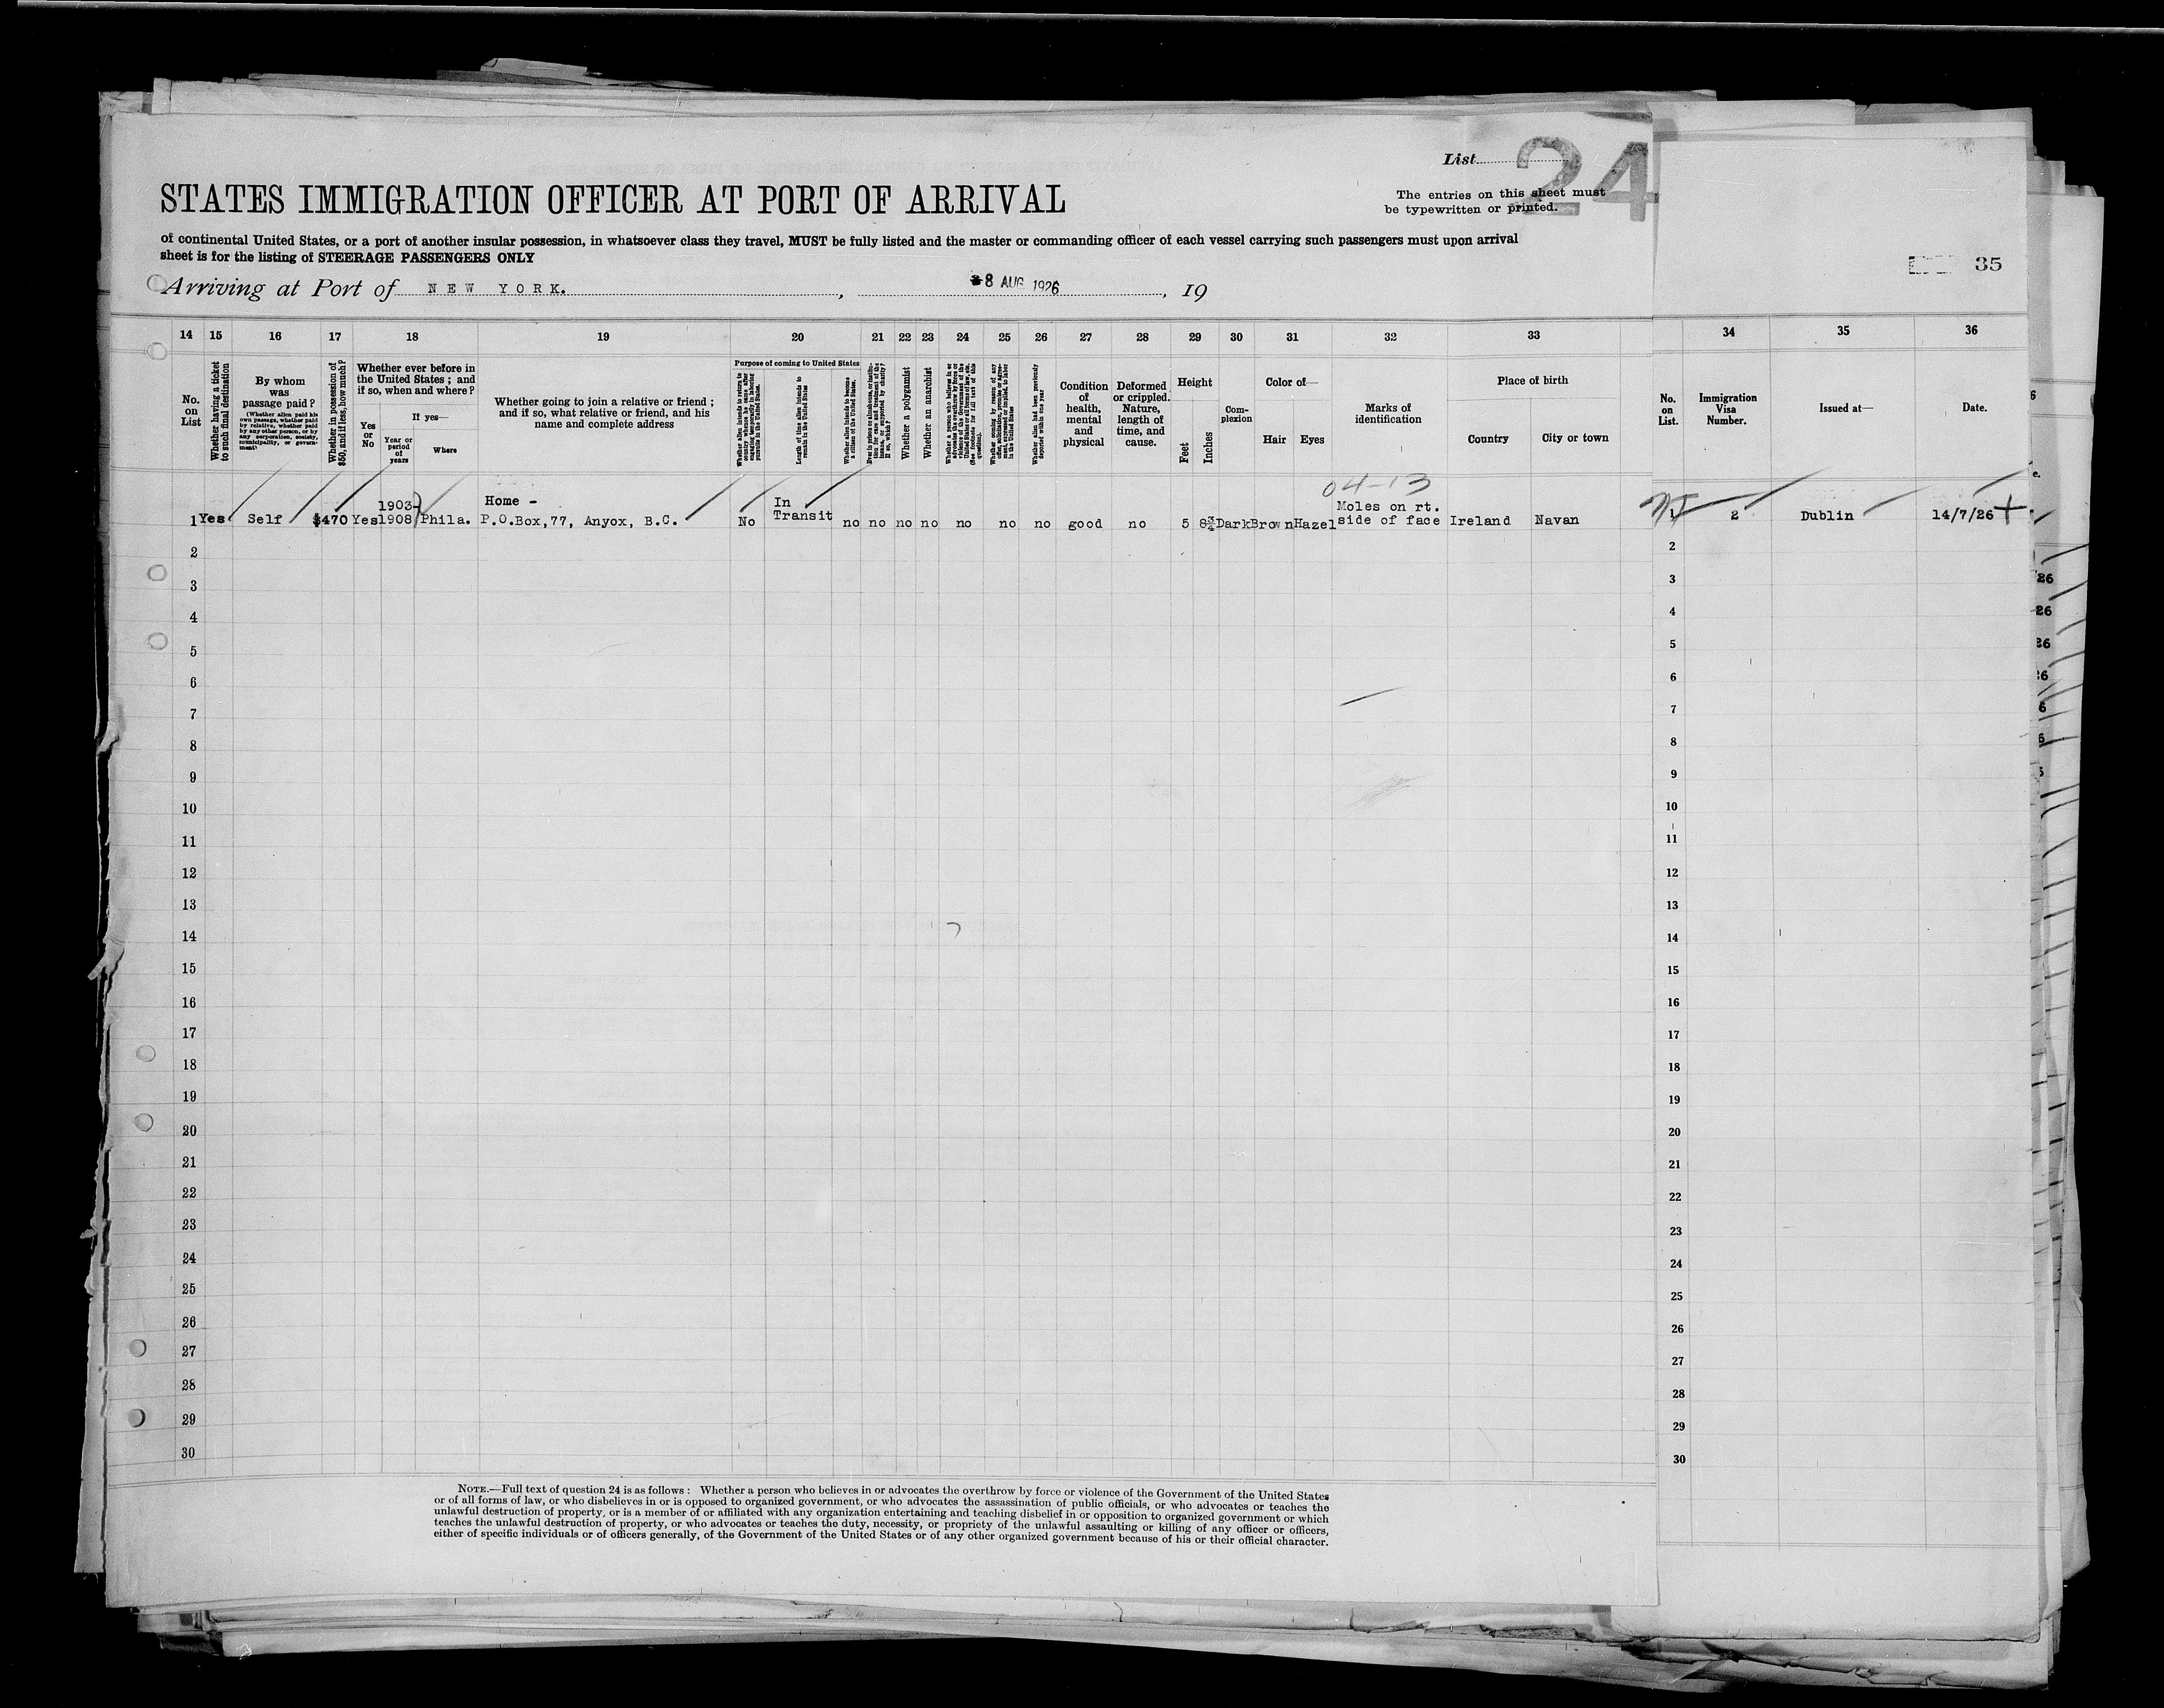 List
24
The entries on this sheet must
be typewritten or printed.
STATES IMMIGRATION OFFICER AT PORT OF ARRIVAL
of continental United States, or a port of another insular possession, in whatsoever class they travel, MUST be fully listed and the master or commanding officer of each vessel carrying such passengers must upon arrival
sheet is for the listing of STEERAGE PASSENGERS ONLY
35
Arriving at Port of NEW YORK. , 8 AUG 1926 , 19
14 15 16 17 18 19 20 21 22 23 24 25 26 27 28 29 30 31 32 33 34 35 36
No. on List
Whether having a ticket to such final destination
By whom was passage paid?
(Whether alien paid his own passage, whether paid by relative, whether paid by any other person, or by any corporation, society, municipality, or government)
Whether in possession of $50, and if less, how much?
Whether ever before in the United States; and if so, when and where?
Yes or No
If yes—
Year or period of years
Where
Whether going to join a relative or friend; and if so, what relative or friend, and his name and complete address
Purpose of coming to United States
Whether alien intends to return to country whence he came after engaging temporarily in laboring pursuits in the United States.
Length of time alien intends to remain in the United States
Whether alien intends to become a citizen of the United States.
Ever in prison or almshouse, or institution for care and treatment of the insane, or supported by charity? If so, which?
Whether a polygamist
Whether an anarchist
Whether coming by reason of any offer, solicitation, promise or agreement, expressed or implied, to labor in the United States
Whether alien had been previously deported within one year
Condition of health, mental and physical
Deformed or crippled. Nature, length of time, and cause.
Height
Feet
Inches
Complexion
Color of—
Hair
Eyes
Marks of identification
Place of birth
Country
City or town
No. on List.
Immigration Visa Number.
Issued at—
Date.
04-13
1 Yes Self $470 Yes 1903-1908 Phila. Home - P.O.Box,77, Anyox, B.C. No In Transit no no no no no no no good no 5 8¾ Dark Brown Hazel Moles on rt. side of face Ireland Navan 2 Dublin 14/7/26 +
2 2
3 3
4 4
5 5
6 6
7 7
8 8
9 9
10 10
11 11
12 12
13 13
14 14
15 15
16 16
17 17
18 18
19 19
20 20
21 21
22 22
23 23
24 24
25 25
26 26
27 27
28 28
29 29
30 30
NOTE.—Full text of question 24 is as follows: Whether a person who believes in or advocates the overthrow by force or violence of the Government of the United States
or of all forms of law, or who disbelieves in or is opposed to organized government, or who advocates the assassination of public officials, or who advocates or teaches the
unlawful destruction of property, or is a member of or affiliated with any organization entertaining and teaching disbelief in or opposition to organized government or which
teaches the unlawful destruction of property, or who advocates or teaches the duty, necessity, or propriety of the unlawful assaulting or killing of any officer or officers,
either of specific individuals or of officers generally, of the Government of the United States or of any other organized government because of his or their official character.